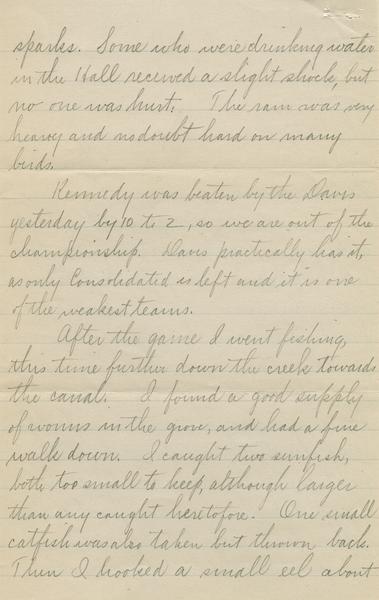 sparks. Some who were drinking water
in the Hall received a slight shock, but
no one was hurt. The rain was very
heavy and no doubt hard on many
birds.
Kennedy was beaten by the Davis
yesterday by 10 to 2, so we are out of the
championship. Davis practically has it,
as only Consolidated is left and it is one
of the weakest teams.
After the game I went fishing,
this time further down the creek towards
the canal. I found a good supply
of worms in the grove, and had a fine
walk down. I caught two sunfish,
both too small to keep, although larger
than any caught heretofore. One small
catfish was also taken but thrown back.
Then I hooked a small eel about